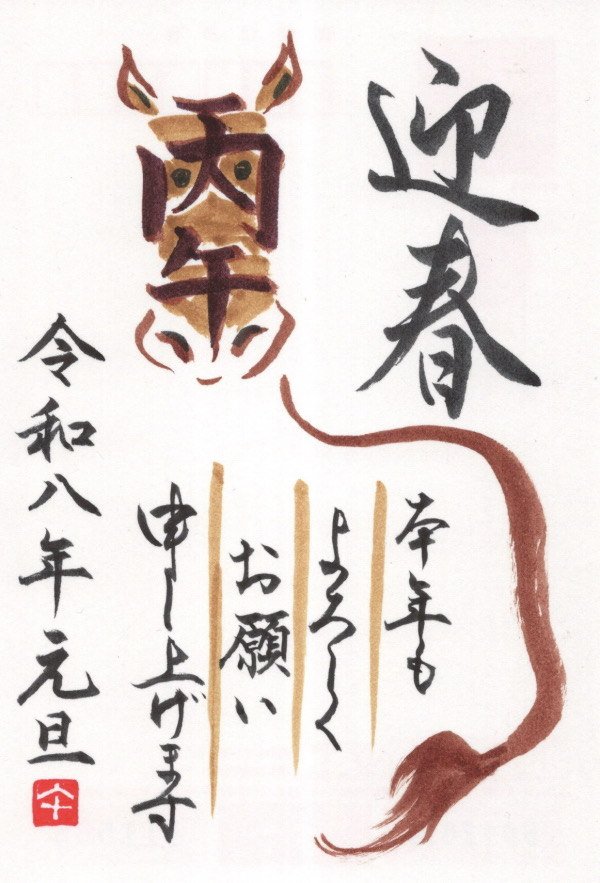 迎春
本年も
よろしく
お願い
申し上げます
丙午
令和八年元旦